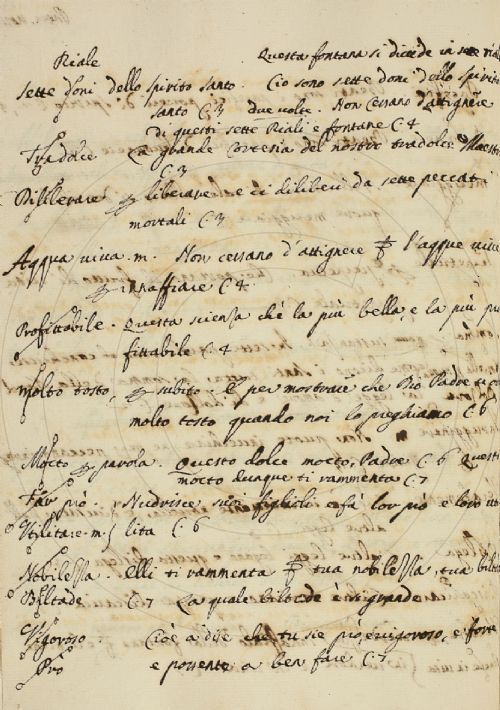 Riale Questa fontana si divide in sette riali
sette doni dello spirito santo. Cio sono sette doni dello spirito
santo C.3 due volte. Non cessano d'attignere
di questi sette Riali e fontane C.4
Tradolce La grande Cortesia del nostro tradolce Maestro
C.3
Diliberare liberare e ci diliberi da sette peccati
mortali C.3
Acqua viva. m. Non cessano d'attignere l'acque vive
innaffiare C.4.
Profittabile. Questa scienza ch'è la più bella, e la più pro
fittabile C.4
molto tosto, subito. E per mostrare che Dio Padre
molto tosto quando noi lo preghiamo C.6
Mocto parola. Questo dolce mocto, Padre C.6 Questo
mocto dunque ti rammenta C.7
Far prò Nudrisce suoi figlioli e fa lor prò e loro uti
Utilitare. m. lita C.6
Nobilezza. Elli ti rammenta tua nobilezza, tua bilta
Biltade C.7 La quale biltade è sì grande
Vigoroso. Cioè a dire che tu sie prò, e vigoroso, e forte
Prò e possente a ben fare C.7